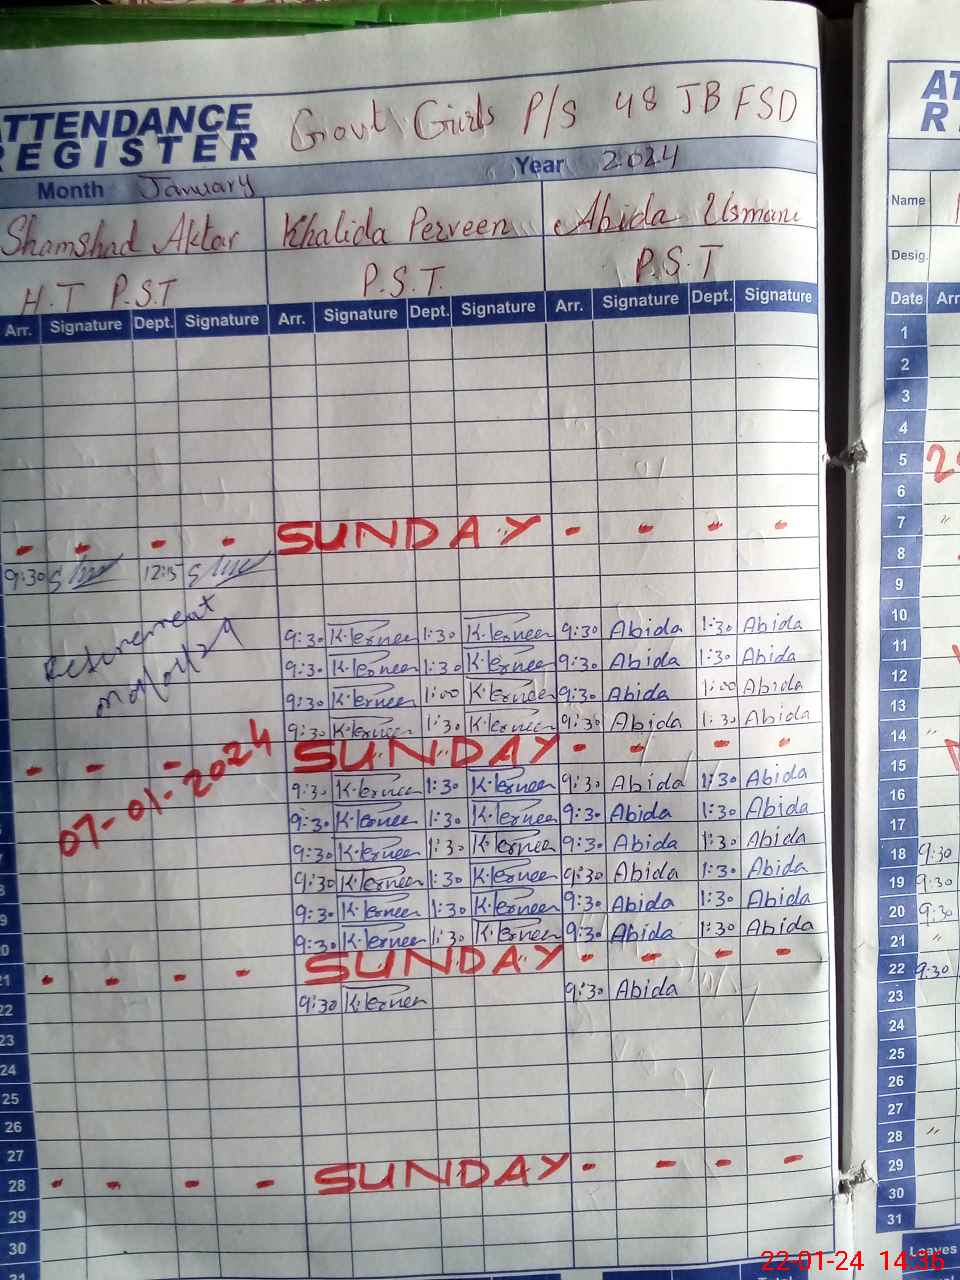 ATTENDANCE REGISTER Govt Girls P/S 48 JB FSD
Month January Year 2024
Shamshad Aktar Khalida Perveen Abida Usmani
H.T P.S.T P.S.T. P.S.T
Arr. Signature Dept. Signature Arr. Signature Dept. Signature Arr. Signature Dept. Signature
- - - - SUNDAY - - - -
9:30 12:15
Retirement
9:30 K.Perveen 1:30 K.Perveen 9:30 Abida 1:30 Abida
9:30 K.Perveen 1:30 K.Perveen 9:30 Abida 1:30 Abida
9:30 K.Perveen 1:00 K.Perveen 9:30 Abida 1:00 Abida
9:30 K.Perveen 1:30 K.Perveen 9:30 Abida 1:30 Abida
- - - SUNDAY - - - -
07-01-2024
9:30 K.Perveen 1:30 K.Perveen 9:30 Abida 1:30 Abida
9:30 K.Perveen 1:30 K.Perveen 9:30 Abida 1:30 Abida
9:30 K.Perveen 1:30 K.Perveen 9:30 Abida 1:30 Abida
9:30 K.Perveen 1:30 K.Perveen 9:30 Abida 1:30 Abida
9:30 K.Perveen 1:30 K.Perveen 9:30 Abida 1:30 Abida
9:30 K.Perveen 1:30 K.Perveen 9:30 Abida 1:30 Abida
21 - - - - SUNDAY - - - -
22 9:30 K.Perveen 9:30 Abida
23
24
25
26
27
28 - - - - SUNDAY - - - -
29
30
31
Name
Desig.
Date Arr
1
2
3
4
5
6
7 "
8
9
10
11
12
13
14 "
15
16
17
18 9:30
19 9:30
20 9:30
21 "
22 9:30
23
24
25
26
27
28 "
29
30
31
Leaves
22-01-24 14:36